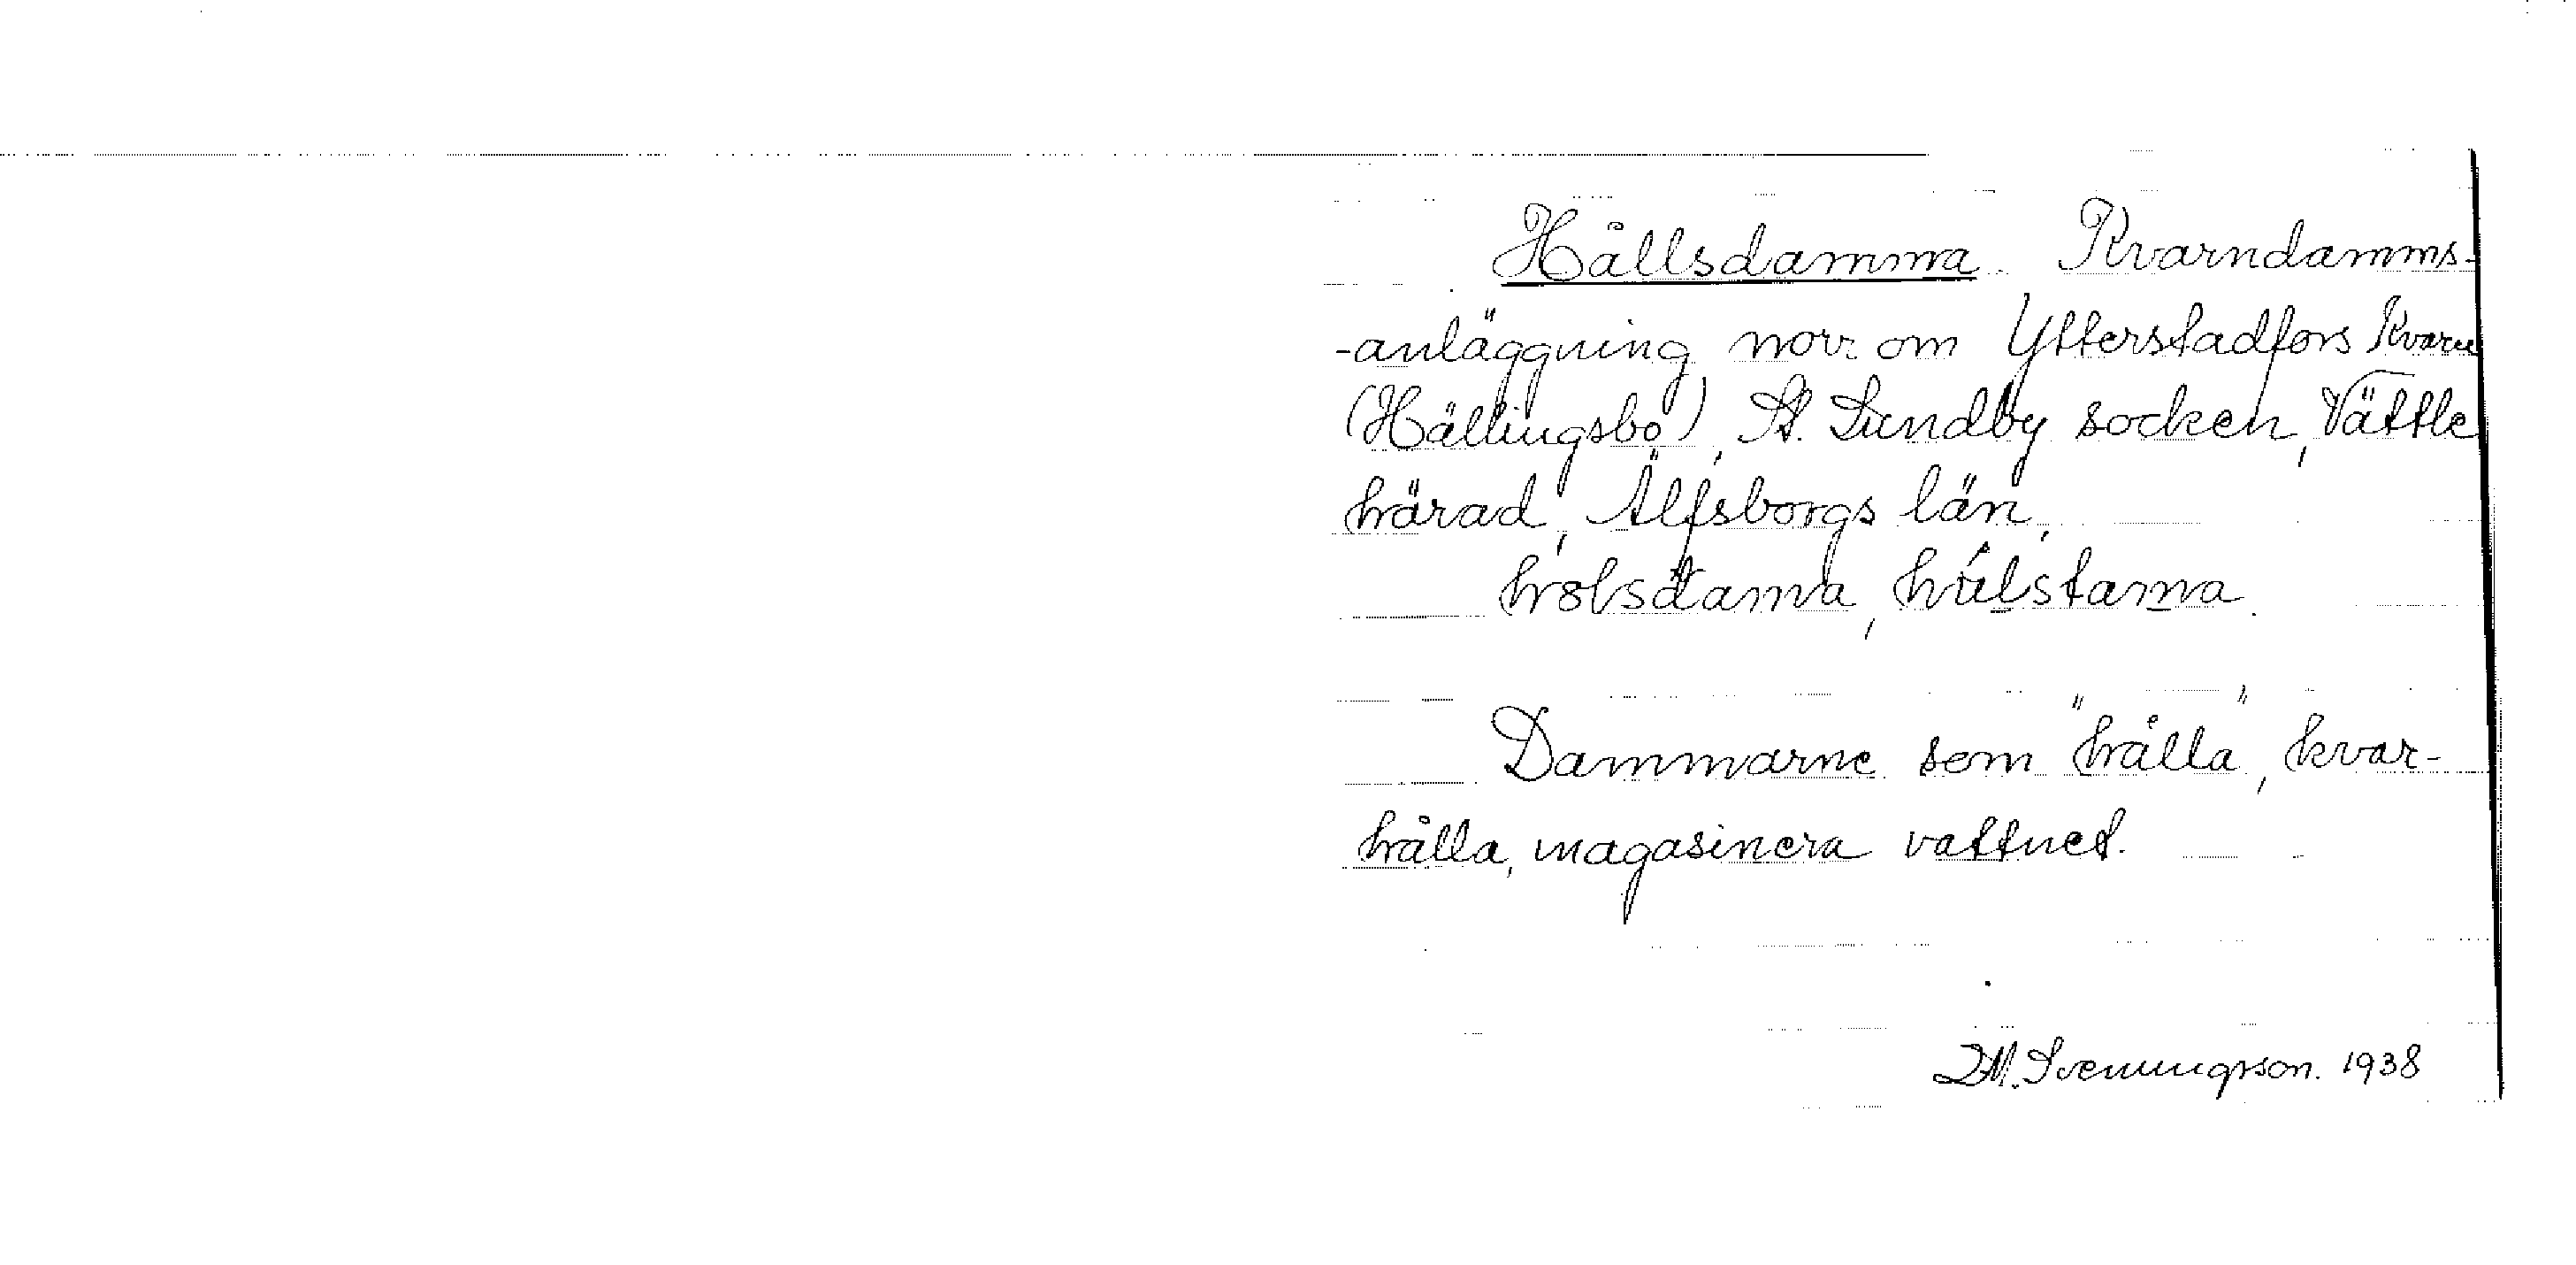 Hållsdamma. Kvarndamms-
-anläggning norr om Ytterstadfors Kvarn
(Hällingsbo), St. Lundby socken, Vättle
härad, Älfsborgs län.
Dammarne som "hålla", kvar-
hålla, magasinera vattnet.
D.M. Svenningsson. 1938